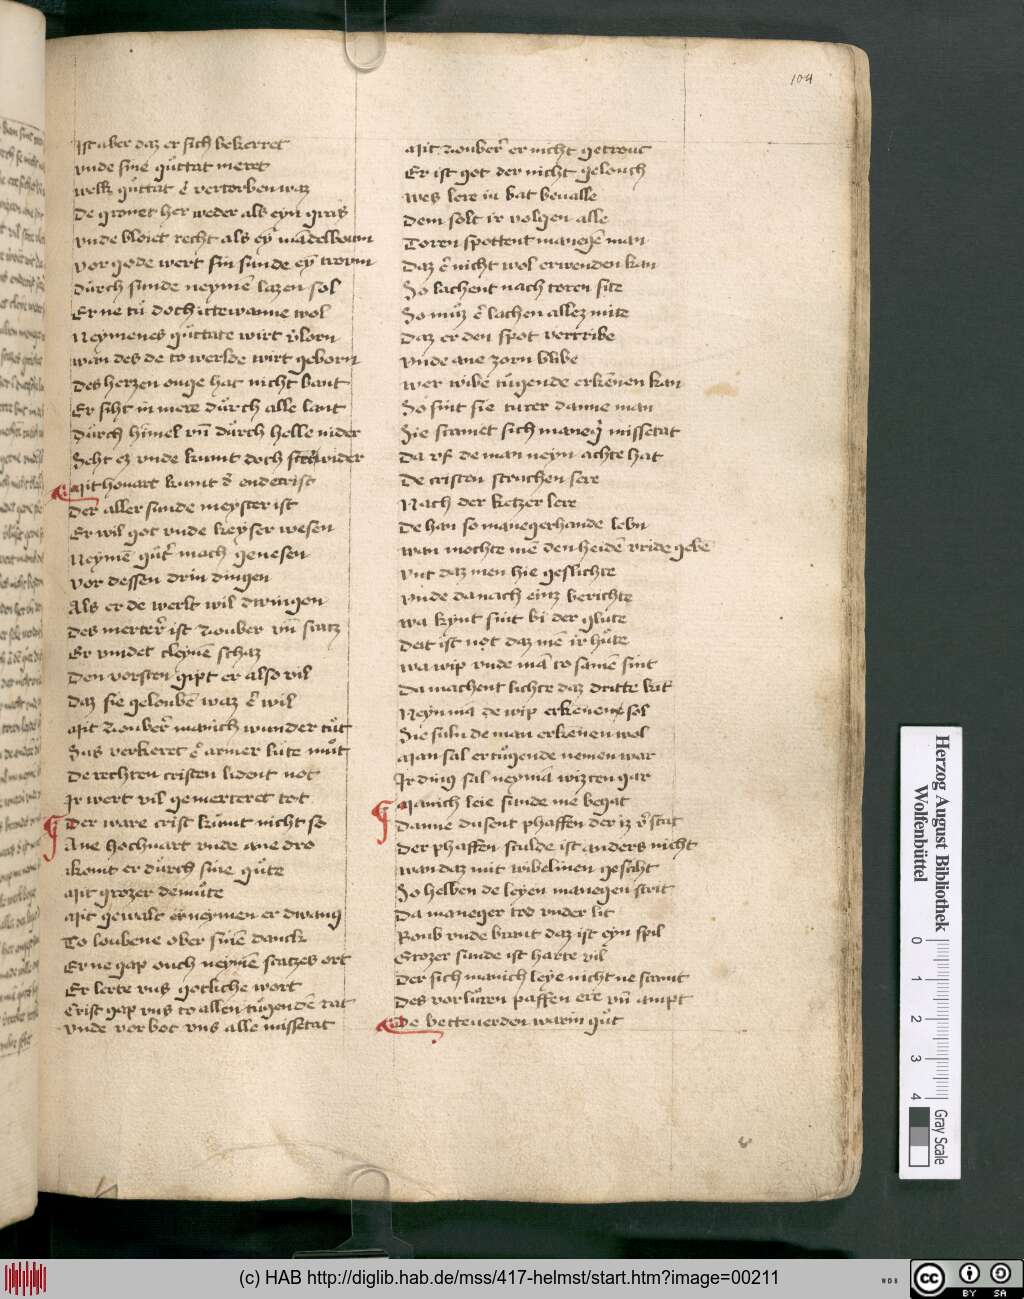 104
Ist aber daz er sich bekerret
vnde sine gůttat meret
welk gůttat e̾ vertorben waz
De gronet her weder als eyn gras
vnde bloiet recht als ey̅ mandelboum
vor gode wert sin sunde ey̅ troum
Důrch sunde neyme̅ lazen sol
Er ne tů doch ittewanne wol
Neymenes gůttate wirt v̾lorn
wan des de to werlde wirt geborn
Des herzen ouge hat nicht bant
Er siht in mere důrch alle lant
Důrch himel vn̅ důrch helle nider
Seht ez vnde kumt doch wider
Mit houart kumt d̾ endecrist
Der aller sunde meyster ist
Er wil got vnde keyser wesen
Neyme̅ gůt̾ mach genesen
vor dessen drin dingen
Als er de werlt wil dwingen
Des merter̾ ist zouber vn̅ scatz
Er vindet cleyne̅ schaz
Den vorsten gipt er also vil
Daz sie gelouben waz e̾ wil
Mit zouber̾ manich wunder tůt
Sus verkeret e̾ armer lute můt
De rechten cristen lident not
Ir wert vil gemerteret tot
Der ware crist kumt nicht so
Ane hochuart vnde ane dro
komt er důrch sine gůte
Mit grozer demůte
Mit gewalt eyneymen er dwang
To loubene ober sine̅ danck
Er ne gap ouch neyme̅ scatzes ort
Er lerte vns gotliche wort
Crist gap vns to allen tůgende̅ rat
vnde verbot vns alle missetat
Mit zouber̾ er nicht getrouc
Er ist got der nicht gelouch
wes lere in bat beualle
Dem solt ir volgen alle
Toren spottent manege̅ man
Daz e̾ nicht wol erwenden kan
So lachent nach toren site
So můz e̾ lachen allez mite
Daz er den spot vertribe
vnde ane zorn blibe
wer wibe tůgende erkennen kan
So sint sie turer danne man
Sie scamet sich maneg̾ missetat
Da vf de man neyn achte hat
De cristen struchen sere
Nach der ketzer lere
De han so manegerhande lebn
wan mochte me̅ den heide̅ vride gebe̅
vnt daz men hie geslichte
vnde danach einz berichte
wa kynt sint bi der glute
Dat ist not daz me̅ ir hůte
wa wip vnde ma̅ to same̅ sint
Da machent lichte daz dritte kint
Neyn ma̅ de wip erkennen sol
Sie suln de man erkennen wol
Man sal er tůgende nemen war
Ir ding sal neyma̅ wizten gar
Manich leie sunde me begat
Danne dusent phaffen der iz v̾stat
Der phaffen sculde ist anders nicht
wan daz mit wibelinen gesciht
So helben de leyen manegen strit
Da maneger tod vnder lit
Roub vnde brant daz ist eyn spil
Grozer sunde ist harte vil
Der sich manich leye nicht ne scamt
Des vorlůren paffen ere vn̅ ampt
De betteuerden warin gůt
Herzog August Bibliothek
Wolfenbüttel
0 1 2 3 4
Gray Scale
(c) HAB http://diglib.hab.de/mss/417-helmst/start.htm?image=00211
WDB
CC
BY SA